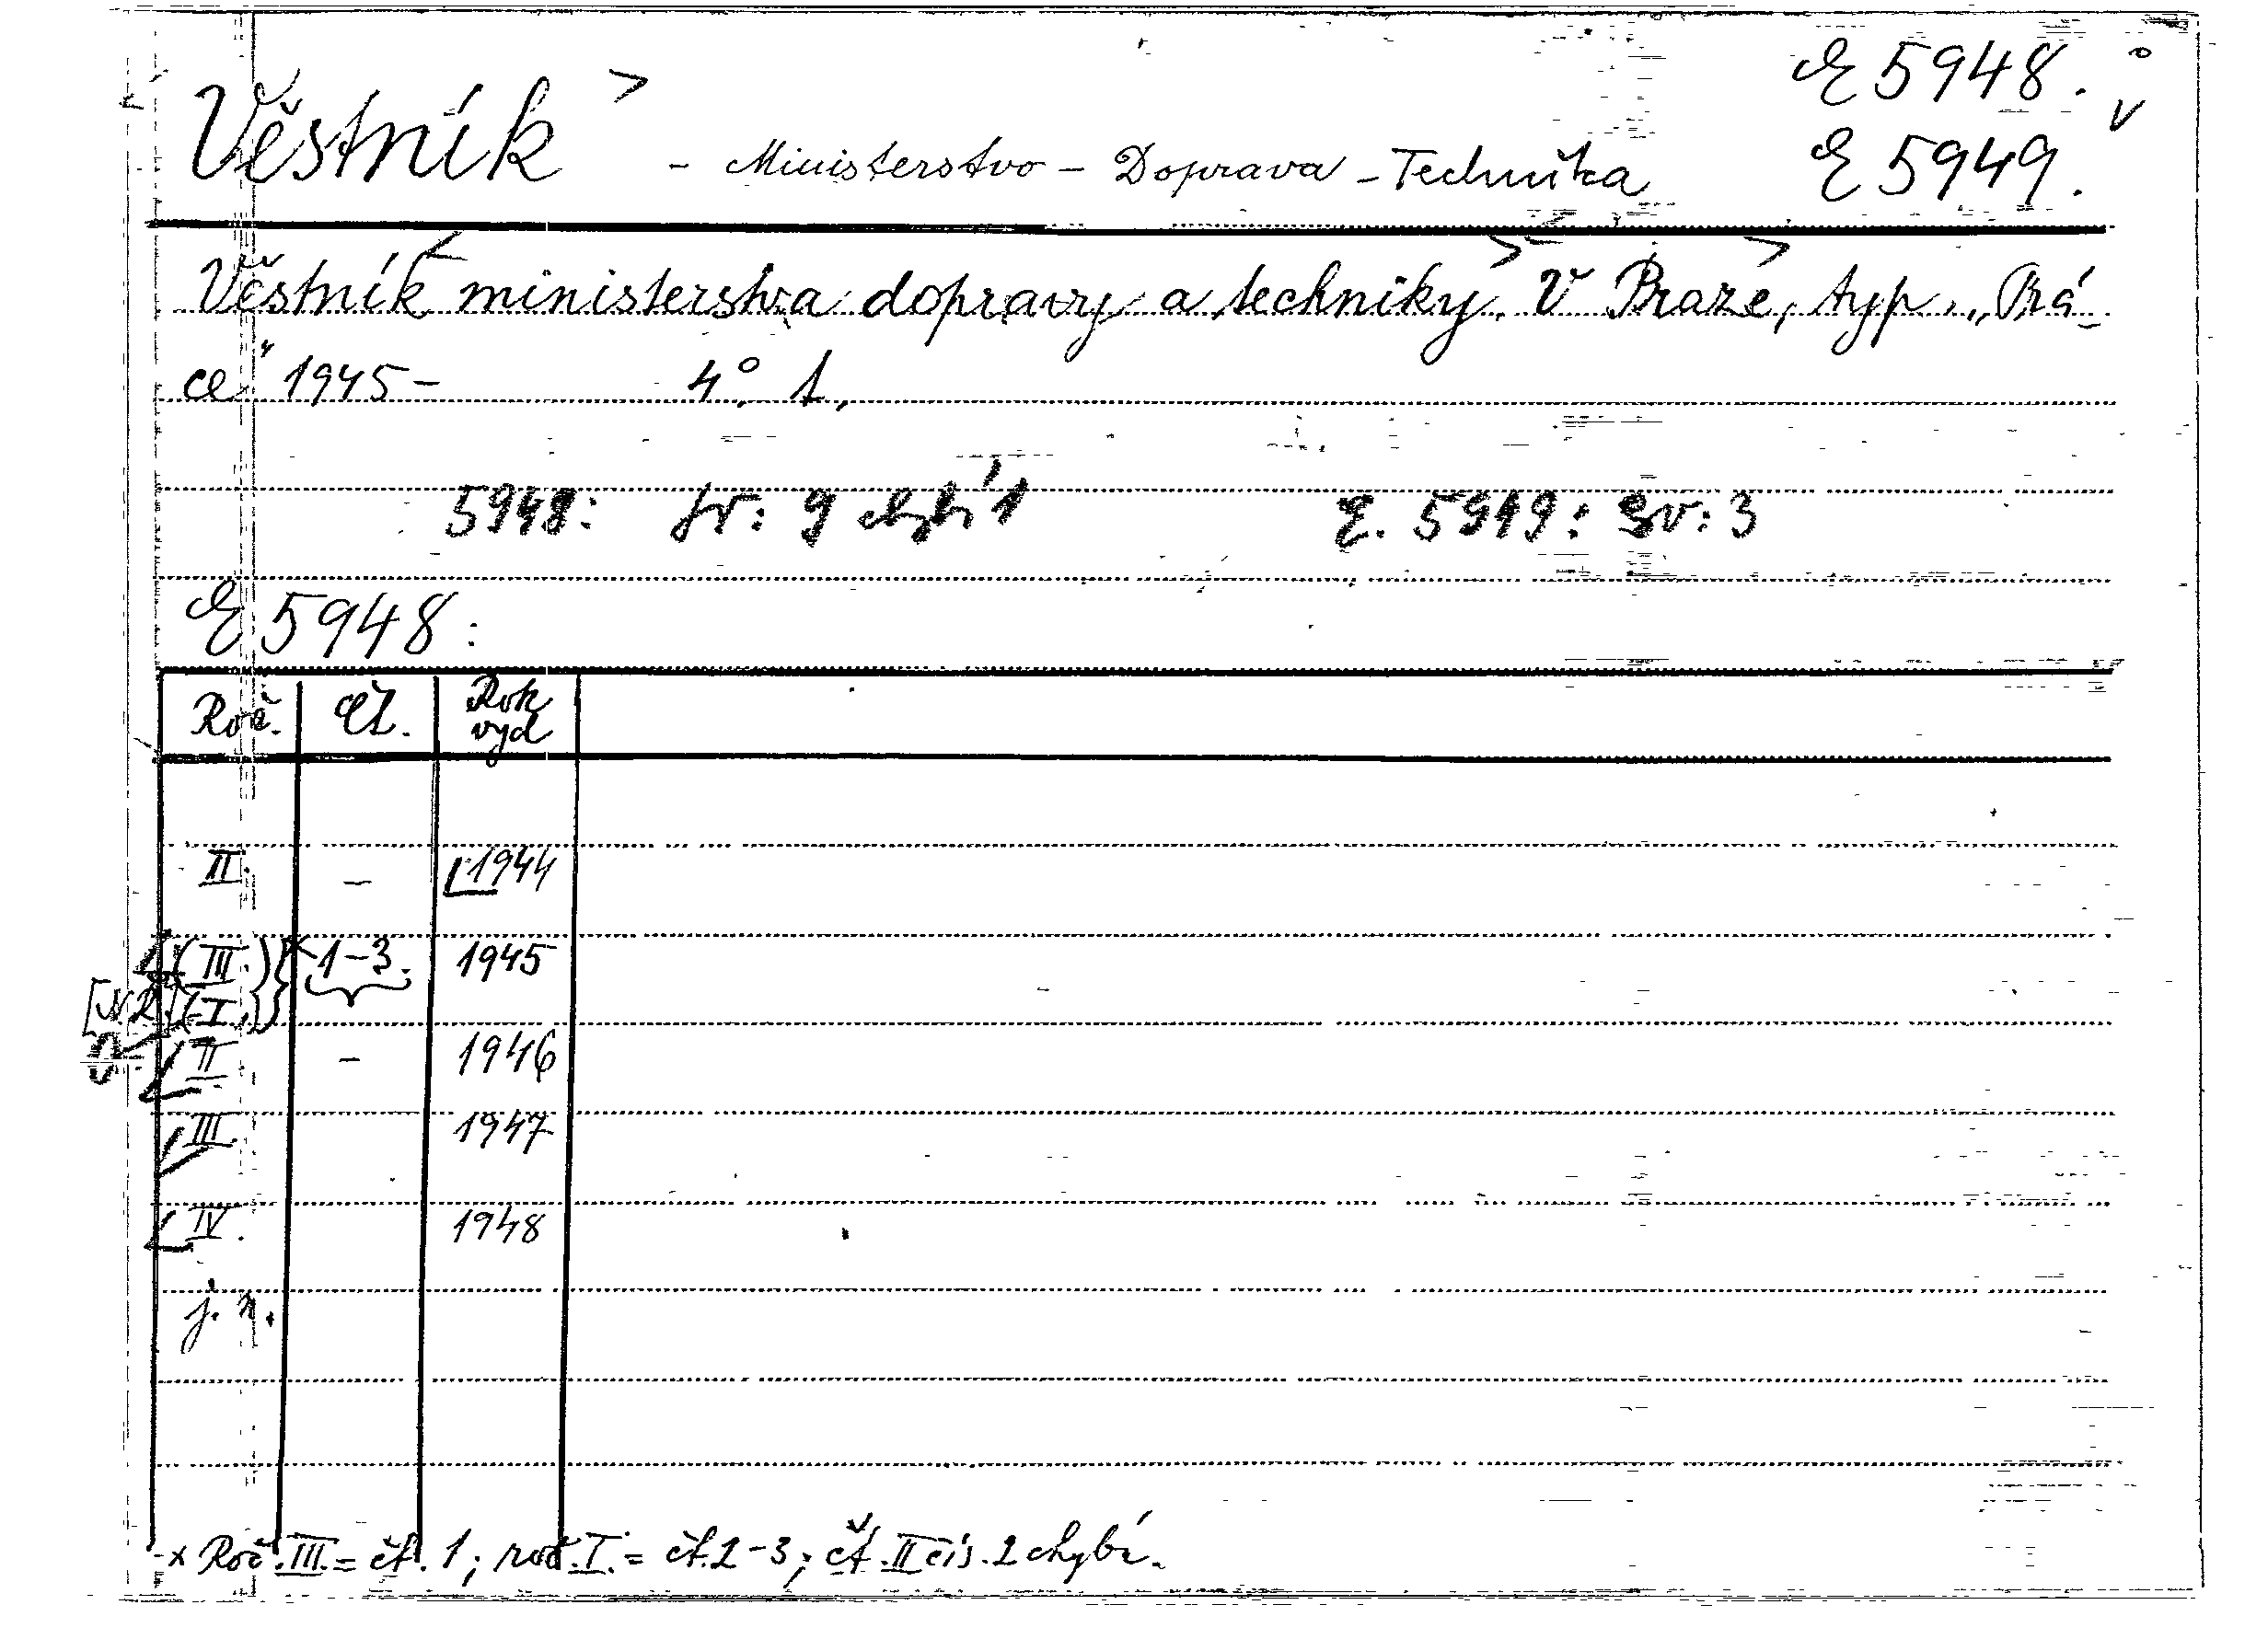 E 5948.
Věstník - Ministerstvo - Doprava - Technika E 5949.
Věstník ministerstva dopravy a techniky. V Praze, typ. „Prá-
ce" 1945- 4°. 1.
5948: sv: 9 chybí 1 E. 5949: sv: 3
E 5948:
Roč. Čl. Rok vyd
II. - 1944
(III.) × 1-3. 1945
(I.)
II - 1946
III. 1947
IV. 1948
j. n.
× Roč. III. = čl. 1; roč. I. = čl. 2-3; čl. II čís. 2 chybí.